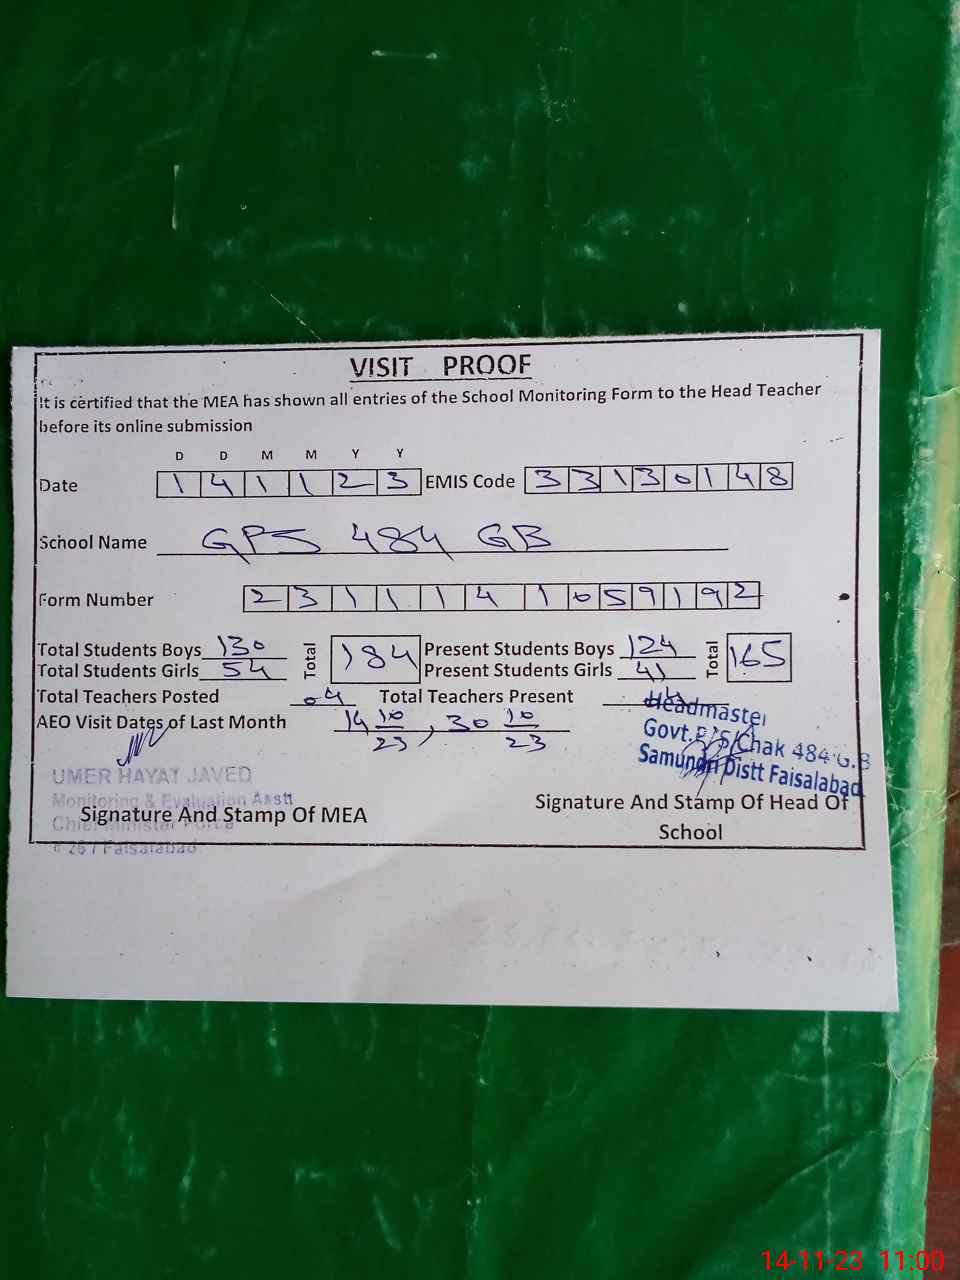 VISIT PROOF
It is certified that the MEA has shown all entries of the School Monitoring Form to the Head Teacher
before its online submission
D D M M Y Y
Date 1 4 1 1 2 3 EMIS Code 3 3 1 3 0 1 4 8
School Name GPS 484 GB
Form Number 2 3 1 1 1 4 1 0 5 9 1 9 2
Total Students Boys 130 Total 184 Present Students Boys 124 Total 165
Total Students Girls 54 Present Students Girls 41
Total Teachers Posted 04 Total Teachers Present
AEO Visit Dates of Last Month 14 10/23, 30 10/23
Headmaster
Govt. P/S Chak 484 G.B
Samundri Distt Faisalabad
UMER HAYAT JAVED
Monitoring & Evaluation Asstt
Chief Minister
Signature And Stamp Of MEA
Faisalabad
Signature And Stamp Of Head Of
School
14-11-23 11:00